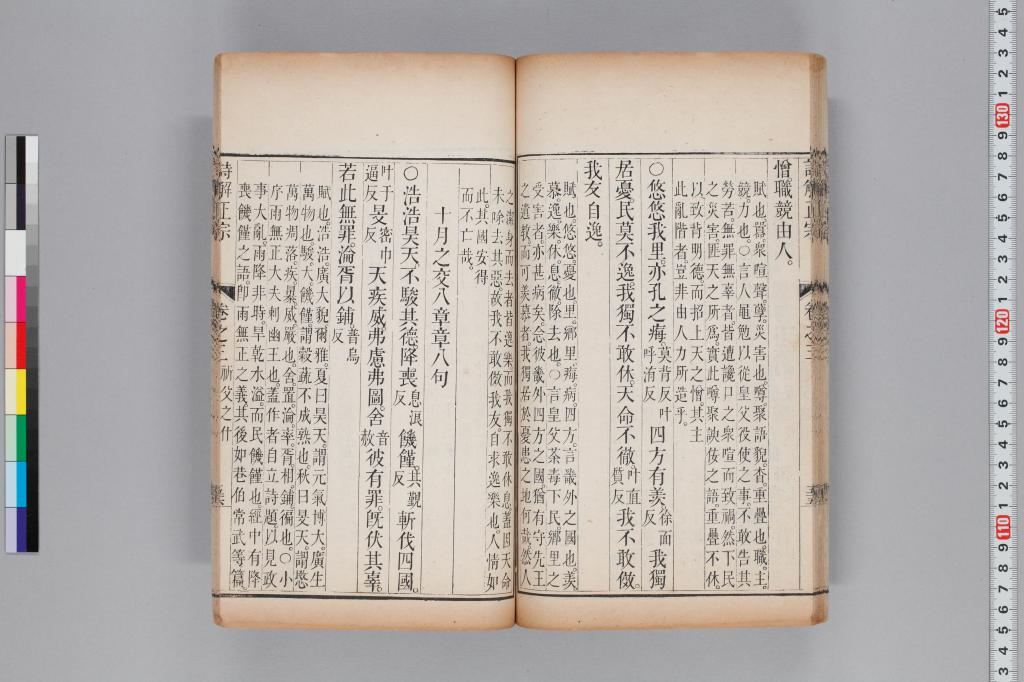 憎職競由人。
賦也。囂衆喧聲。孽災害也。噂聚語貌。沓重疊也。職主
競力也。○言人黽勉以從皇父役使之事。不敢告其
勞苦。無罪無辜者皆遭讒口之衆喧而致禍。然下民
之災害。匪天之所爲。實此噂聚諛佞之語。重疊不休。
以致背明德而招上天之憎。其主
此亂階者。豈非由人力所造乎。
○悠悠我里。亦孔之痗。莫背反叶呼洧反四方有羨。徐面反我獨
居憂。民莫不逸。我獨不敢休。天命不徹。叶直質反我不敢傚。
我友自逸。
賦也。悠悠憂也。里鄉里。痗病。四方。言畿外之國也。羨
慕。逸樂。休息。徹除去也。○言皇父荼毒下民。鄉里之
受害者亦甚病矣。念彼畿外四方之國。猶有守先王
之遺敎而可羨慕者。我獨居於憂患之地何哉。然人
之潔身而去者皆逸樂。而我獨不敢休息。蓋因天命
未除去其惡。故我不敢傚我友。自求逸樂也。人情如
此。其國安得
而不亡哉。
十月之交八章章八句
○浩浩昊天不駿其德。降喪息浪反饑饉。其覲反斬伐四國。
叶于逼反旻密巾反天疾威弗慮弗圖。舍音赦彼有罪。旣伏其辜。
若此無罪。淪胥以鋪。普烏反
賦也。浩浩。廣大貌。爾雅。夏曰昊天。謂元氣博大。廣生
萬物也。駿。大。饑饉謂穀蔬不成熟也。秋曰旻天。謂愍
萬物凋落。疾暴。威嚴也。舍置。淪率。胥相。鋪徧也。○小
序。雨無正大夫刺幽王也。蓋作者自立詩題。以見政
事大亂。雨降非時。旱乾水溢。而民饑饉也。經中有降
喪饑饉之語。卽雨無正之義。其後如巷伯常武等篇。
詩解正宗 卷之三 祈父之什